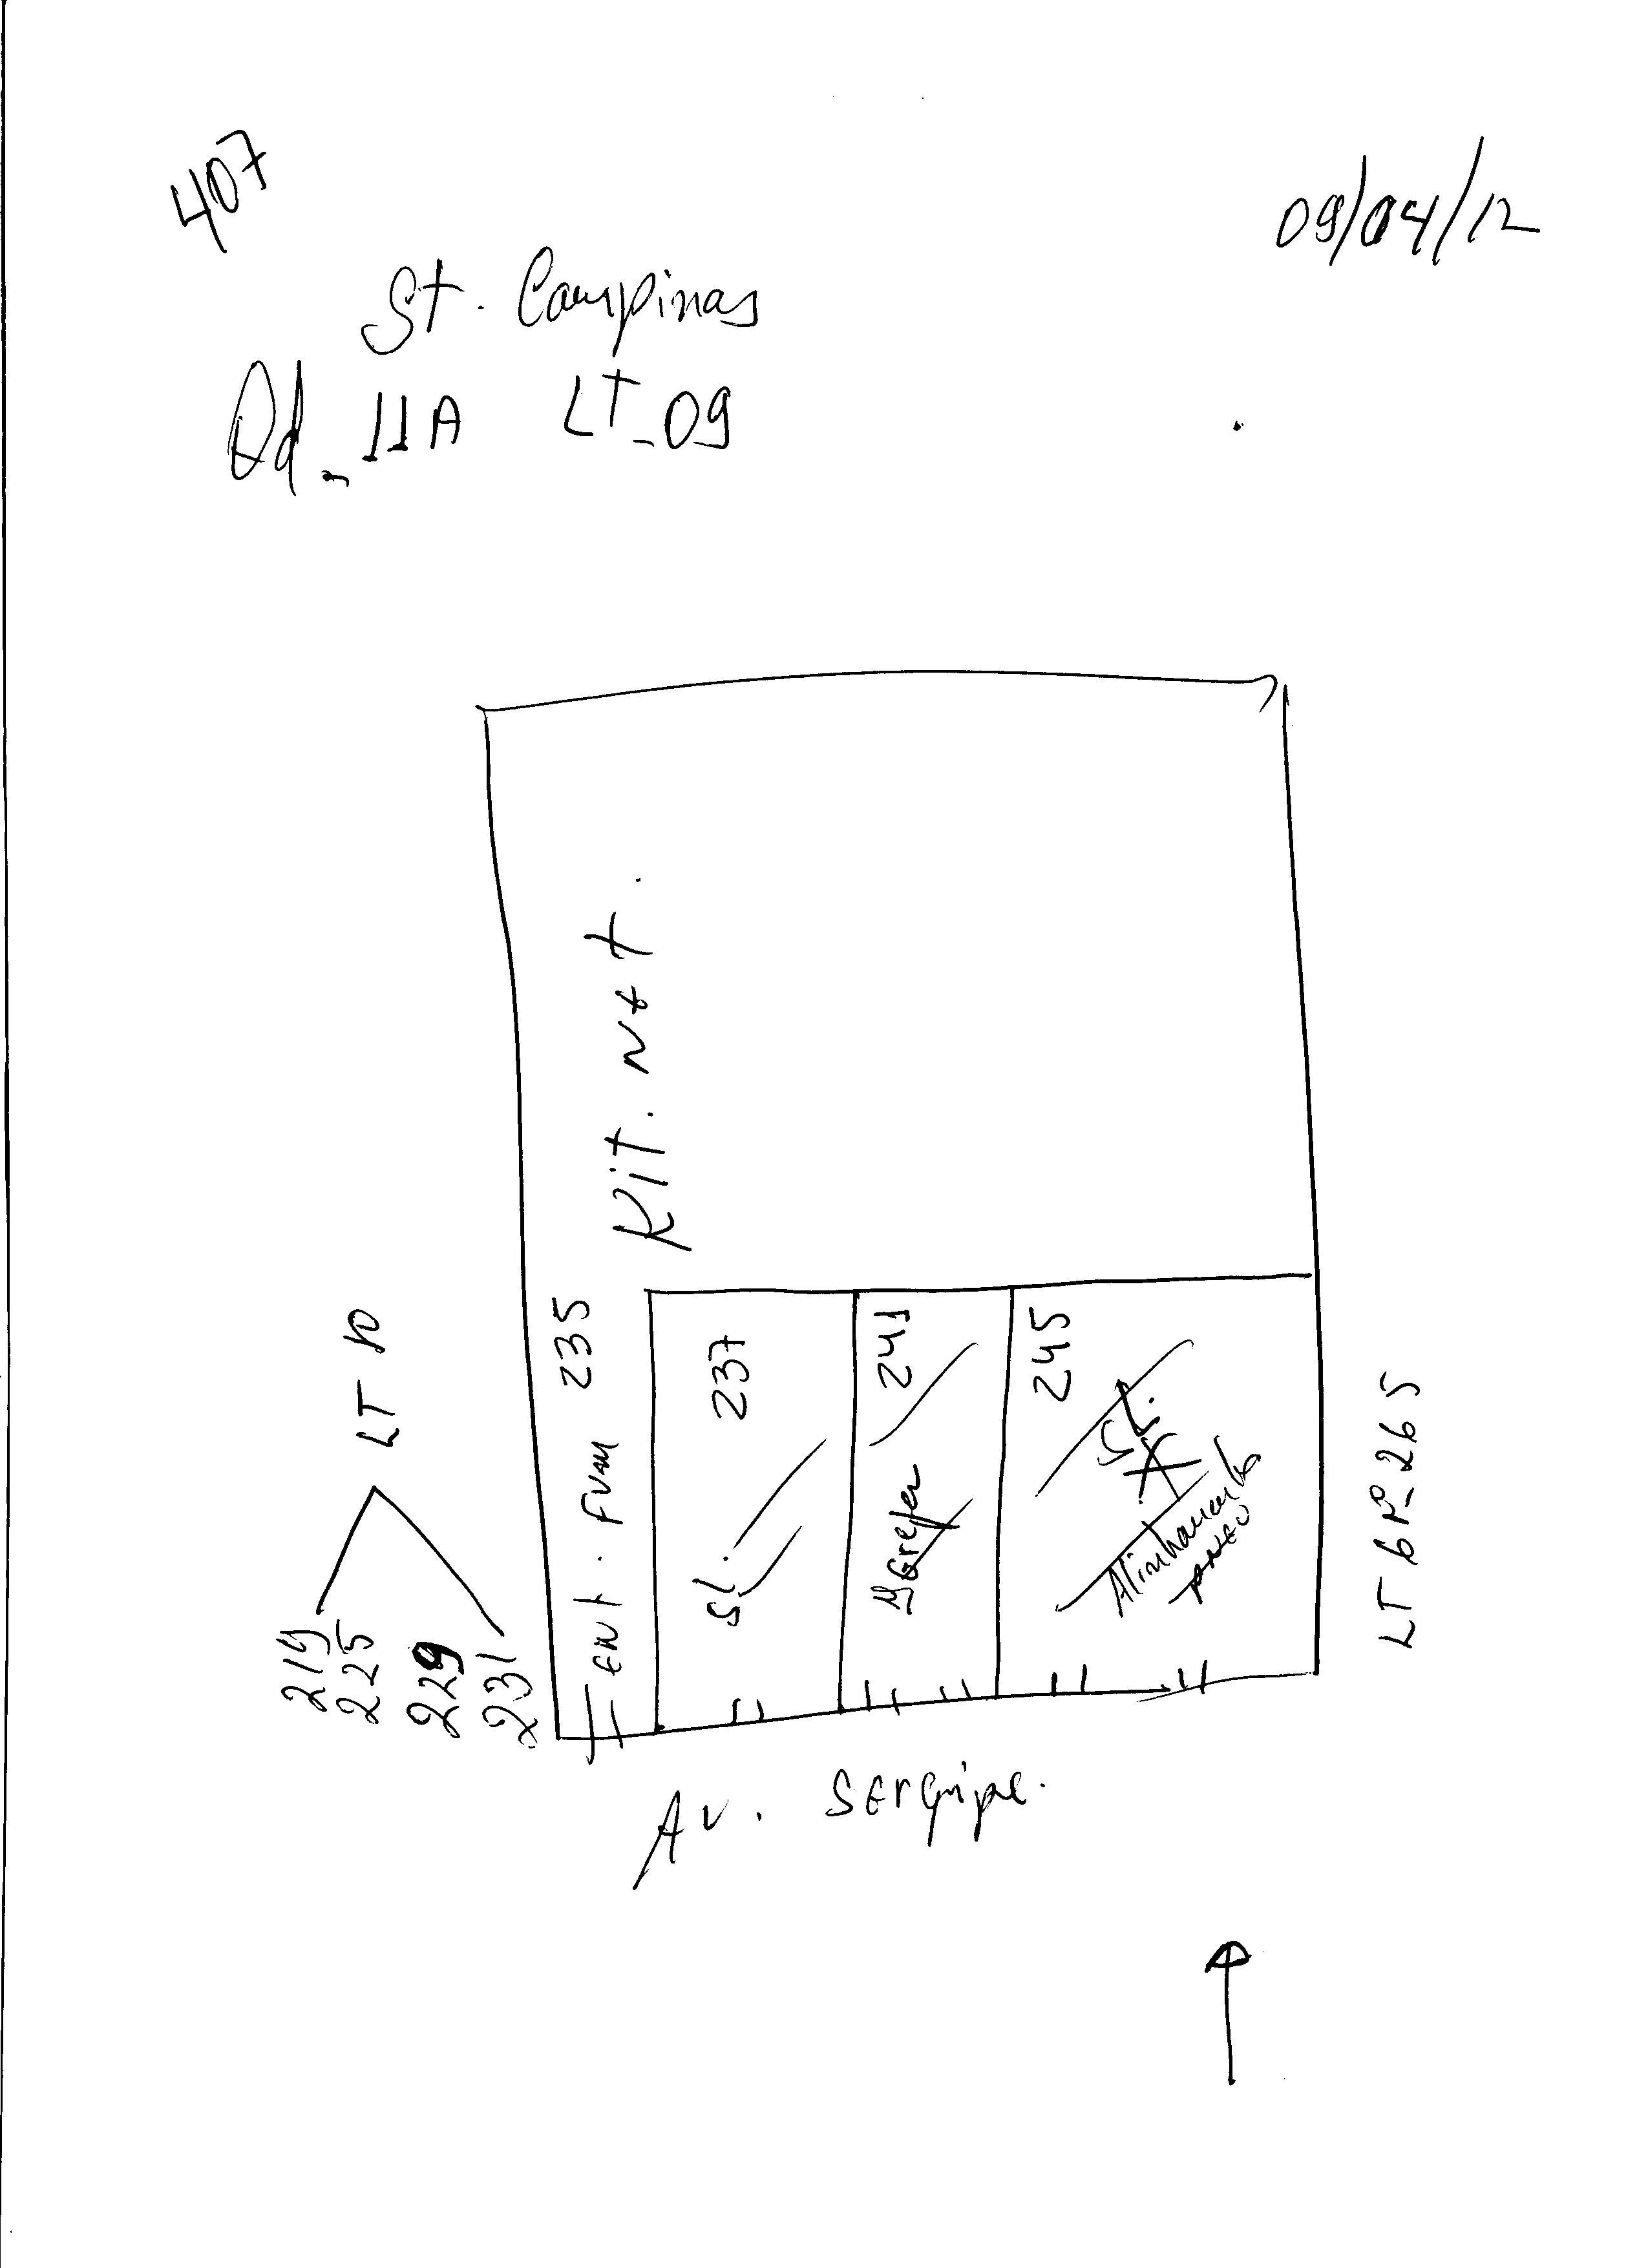 407
09/04/12
St. Campinas
Qd. 11A LT_09
Kit. net.
LT 10
219
225
229
231
Ent. Fun 235
SL. 237
241
245
SL.
Alinhamento
pneu
LT 6 Nº_265
Av. Sergipe.